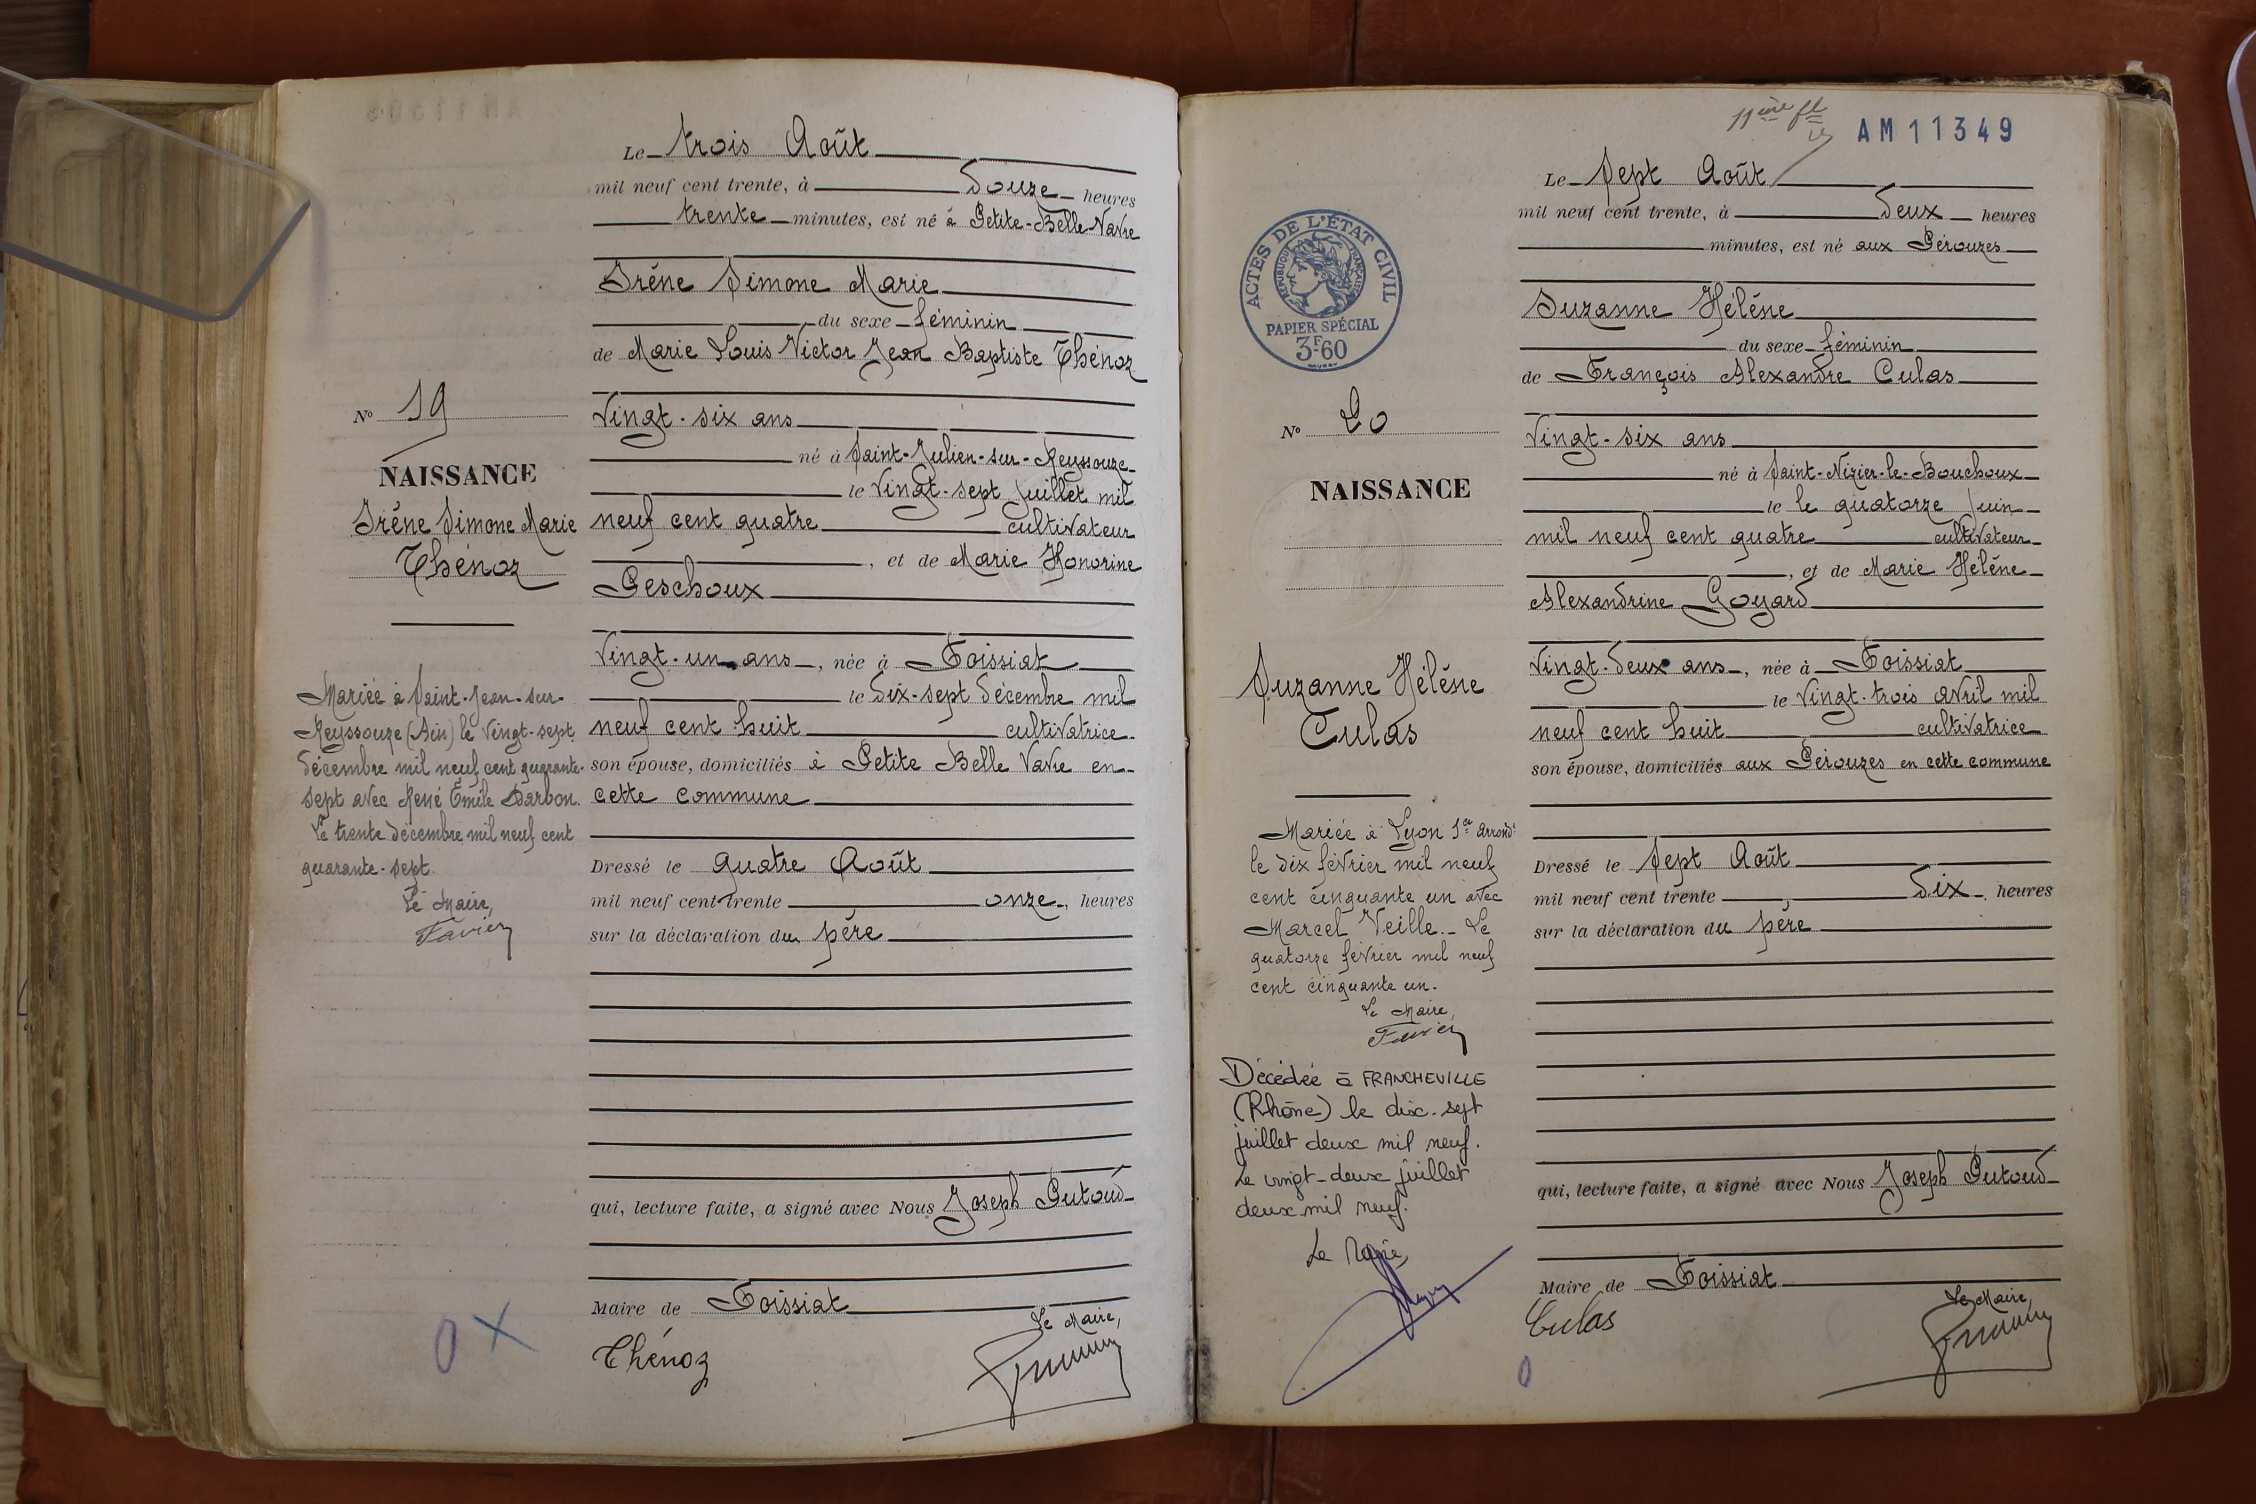 Le trois Août
mil neuf cent trente, à douze heures
trente minutes, est né à Petite-Belle-Vavre
Irène Simone Marie
du sexe féminin
de Marie Louis Victor Jean Baptiste Thénoz
Vingt-six ans
né à Saint-Julien-sur-Reyssouze
le Vingt-sept Juillet mil
neuf cent quatre cultivateur
, et de Marie Honorine
Peschoux
Vingt-un ans, née à Foissiat
le dix-sept décembre mil
neuf cent huit cultivatrice
son épouse, domiciliés à Petite Belle Vavre en
cette commune
Dressé le quatre Août
mil neuf cent trente onze, heures
sur la déclaration du père
qui, lecture faite, a signé avec Nous Joseph Putoud
Maire de Foissiat
Le Maire,
Thénoz
N° 19
NAISSANCE
Irène Simone Marie
Thénoz
Mariée à Saint-Jean-sur-
Reyssouze (Ain) le Vingt-sept
décembre mil neuf cent quarante-
sept avec René Émile Darbon.
Le trente décembre mil neuf cent
quarante-sept
Le Maire,
Favier
0 X
11ème f
AM11349
ACTES DE L'ÉTAT CIVIL
RÉPUBLIQUE FRANÇAISE
PAPIER SPÉCIAL
3F60
Le Sept Août
mil neuf cent trente, à deux heures
minutes, est né aux Pérouzes
Suzanne Hélène
du sexe féminin
de François Alexandre Culas
Vingt-six ans
né à Saint-Nizier-le-Bouchoux
le le quatorze Juin
mil neuf cent quatre cultivateur
, et de Marie Hélène
Alexandrine Goyard
Vingt-deux ans, née à Foissiat
le Vingt-trois avril mil
neuf cent huit cultivatrice
son épouse, domiciliés aux Pérouzes en cette commune
Dressé le Sept Août
mil neuf cent trente dix, heures
sur la déclaration du père
qui, lecture faite, a signé avec Nous Joseph Putoud
Maire de Foissiat
Le Maire,
Culas
0
N° 20
NAISSANCE
Suzanne Hélène
Culas
Mariée à Lyon 1er arrondt
le dix février mil neuf
cent cinquante un avec
Marcel Veille. - Le
quatorze février mil neuf
cent cinquante un.
Le Maire,
Favier
Décédée à FRANCHEVILLE
(Rhône) le dix-sept
juillet deux mil neuf.
Le vingt-deux juillet
deux mil neuf.
Le Maire,